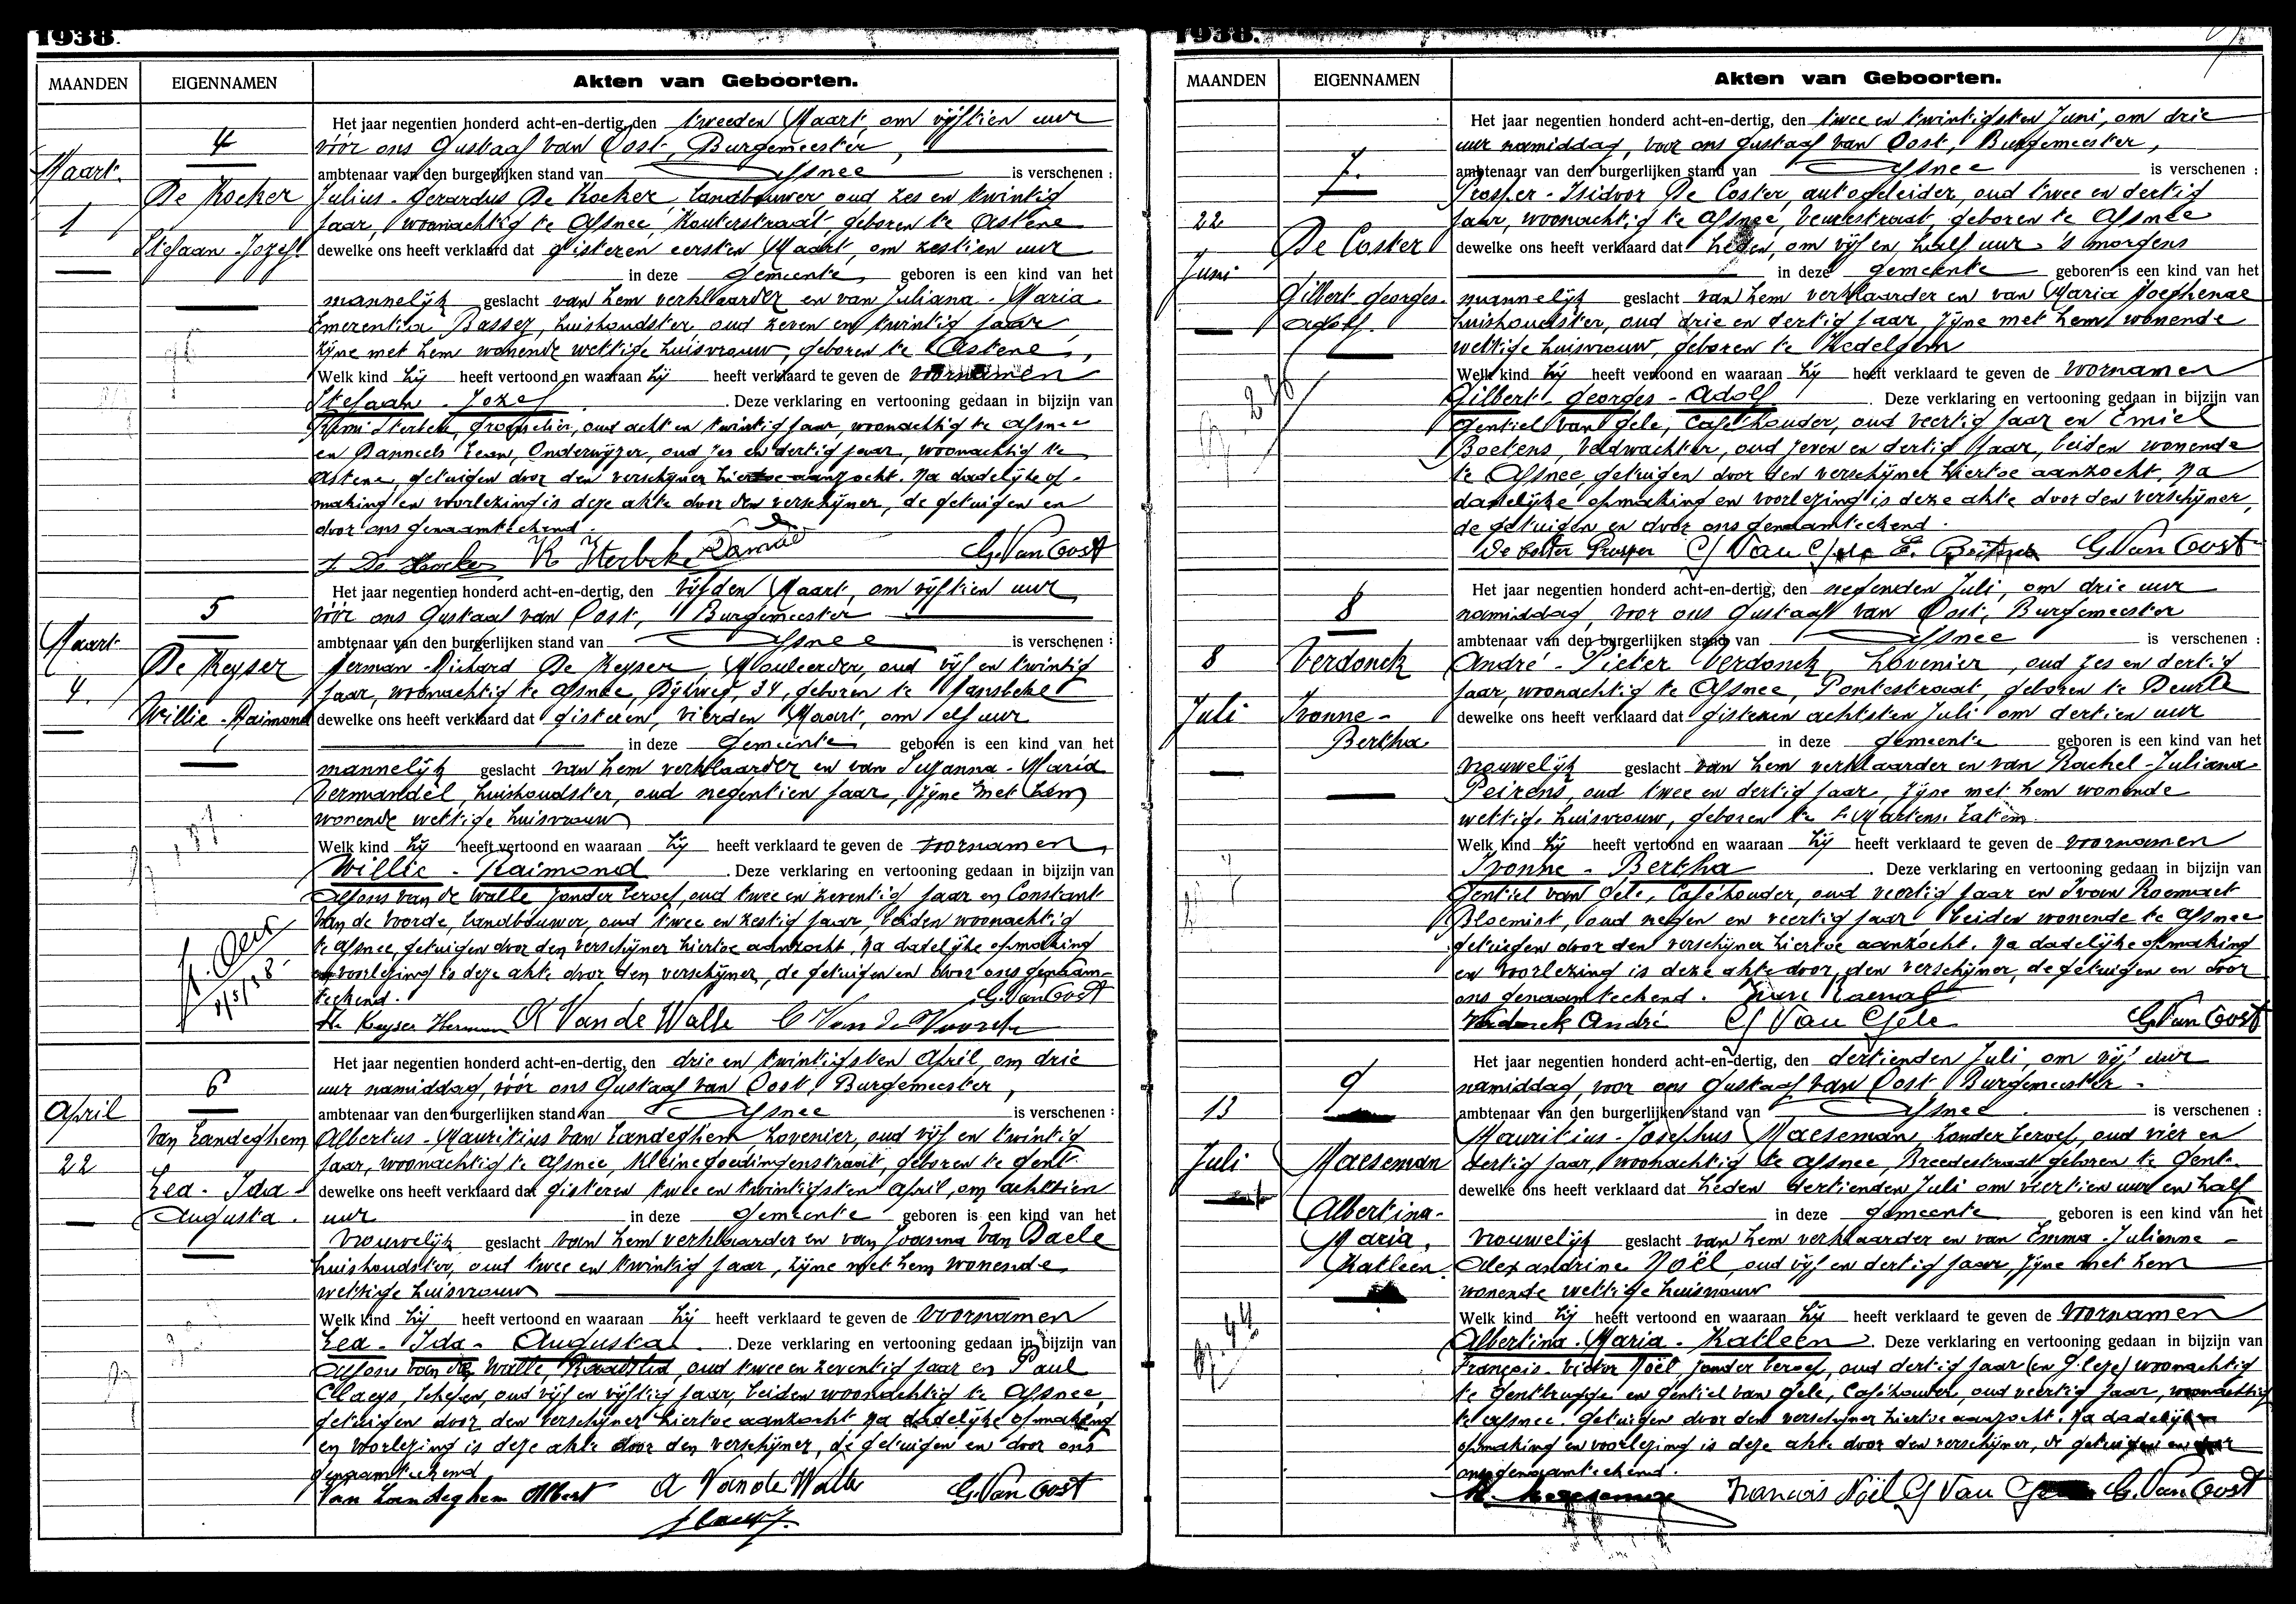 1938.
MAANDEN
EIGENNAMEN
Akten van Geboorten.
Maart
1
4
De Kocker
Stefaan-Jozef
Het jaar negentien honderd acht-en-dertig, den tweeden Maart, om vijftien uur
vóór ons Gustaaf Van Oost, Burgemeester,
ambtenaar van den burgerlijken stand van Afsnee is verschenen :
Julius-Gerardus De Kocker, Landbouwer oud zes en twintig
jaar, woonachtig te Afsnee, Kouterstraat, geboren te Astene
dewelke ons heeft verklaard dat gisteren eersten Maart, om zestien uur
in deze gemeente, geboren is een kind van het
mannelijk geslacht van hem verklaarder en van Juliana-Maria
Emerentia huishoudster, oud zeven en twintig jaar,
zijne met hem wonende wettige huisvrouw, geboren te Astene,
Welk kind hij heeft vertoond en waaraan hij heeft verklaard te geven de voornamen
Stefaan-Jozef. Deze verklaring en vertooning gedaan in bijzijn van
Remi Sterbeke, oud acht en twintig jaar, woonachtig te Afsnee
en Danneels Leon, Onderwijzer, oud zes en dertig jaar, woonachtig te
Astene, getuigen door den verschijner hiertoe aanzocht. Na dadelijke op-
making en voorlezing is deze akte door den verschijner, de getuigen en
door ons genaamteekend.
R Sterbeke G. Van Oost
Maart
4.
5
De Keyser
Willie-Raimond
Het jaar negentien honderd acht-en-dertig, den vijfden Maart, om vijftien uur
vóór ons Gustaaf van Oost, Burgemeester
ambtenaar van den burgerlijken stand van Afsnee is verschenen :
Herman-Richard De Keyser, Mouleerder, oud vijf en twintig
jaar, woonachtig te Afsnee, Rijweg, 34, geboren te Hansbeke
dewelke ons heeft verklaard dat gisteren, vierden Maart, om elf uur
in deze gemeente geboren is een kind van het
mannelijk geslacht van hem verklaarder en van Suzanna-Maria
Vermandel, huishoudster, oud negentien jaar, zijne met hem
wonende wettige huisvrouw
Welk kind hij heeft vertoond en waaraan hij heeft verklaard te geven de voornamen
Willie-Raimond. Deze verklaring en vertooning gedaan in bijzijn van
Alfons van de Walle zonder beroep, oud twee en zeventig jaar en Constant
Van de Voorde, landbouwer, oud twee en zestig jaar, beiden woonachtig
te Afsnee, getuigen door den verschijner hiertoe aanzocht. Na dadelijke opmaking
en voorlezing is deze akte door den verschijner, de getuigen en door ons genaam-
teekend. G. Van Oost
De Keyser Herman A Van de Walle C Van de Voorde
April
22
6
Van Landeghem
Lea-Ida-
Augusta.
Het jaar negentien honderd acht-en-dertig, den drie en twintigsten April, om drie
uur namiddag, vóór ons Gustaaf van Oost, Burgemeester,
ambtenaar van den burgerlijken stand van Afsnee is verschenen :
Albertus-Mauritius Van Landeghem hovenier, oud vijf en twintig
jaar, woonachtig te Afsnee, Kleinegoedingenstraat, geboren te Gent
dewelke ons heeft verklaard dat gisteren twee en twintigsten April, om achttien
uur in deze gemeente geboren is een kind van het
vrouwelijk geslacht van hem verklaarder en van Joanna Van Daele
huishoudster, oud twee en twintig jaar, zijne met hem wonende
wettige huisvrouw
Welk kind hij heeft vertoond en waaraan hij heeft verklaard te geven de voornamen
Lea-Ida-Augusta. Deze verklaring en vertooning gedaan in bijzijn van
Alfons van de Walle, Raadslid, oud twee en zeventig jaar en Paul
Claeys, Schepen, oud vijf en vijftig jaar, beiden woonachtig te Afsnee
getuigen door den verschijner hiertoe aanzocht na dadelijke opmaking
en voorlezing is deze akte door den verschijner, de getuigen en door ons
genaamteekend
Van Landeghem Albert A Van de Walle G. Van Oost
1938.
MAANDEN
EIGENNAMEN
Akten van Geboorten.
22
Juni
7.
De Coster
Gilbert-Georges-
Adolf.
Het jaar negentien honderd acht-en-dertig, den twee en twintigsten Juni, om drie
uur namiddag, voor ons Gustaaf van Oost, Burgemeester,
ambtenaar van den burgerlijken stand van Afsnee is verschenen :
Prosper-Isidoor De Coster, autogeleider, oud twee en dertig
jaar, woonachtig te Afsnee, Veurestraat, geboren te Afsnee
dewelke ons heeft verklaard dat heden, om vijf en half uur 's morgens
in deze gemeente geboren is een kind van het
mannelijk geslacht van hem verklaarder en van Maria
huishoudster, oud drie en dertig jaar, zijne met hem wonende
wettige huisvrouw, geboren te Zedelgem
Welk kind hij heeft vertoond en waaraan hij heeft verklaard te geven de voornamen
Gilbert-Georges-Adolf. Deze verklaring en vertooning gedaan in bijzijn van
Gentiel van Gele, Caféhouder, oud veertig jaar en Emiel
Boetens, Veldwachter, oud zeven en dertig jaar, beiden wonende
te Afsnee, getuigen door den verschijner hiertoe aanzocht, na
dadelijke opmaking en voorlezing is deze akte door den verschijner,
de getuigen en door ons genaamteekend.
De Coster Prosper G Van Gele E. Boetens G. Van Oost
8
Juli
8
Verdonck
Ivonne-
Bertha
Het jaar negentien honderd acht-en-dertig, den negenden Juli, om drie uur
namiddag, voor ons Gustaaf van Oost, Burgemeester
ambtenaar van den burgerlijken stand van Afsnee is verschenen :
André-Pieter Verdonck, hovenier, oud zes en dertig
jaar, woonachtig te Afsnee, Pontestraat, geboren te Deurle
dewelke ons heeft verklaard dat gisteren achtsten Juli om dertien uur
in deze gemeente geboren is een kind van het
vrouwelijk geslacht van hem verklaarder en van Rachel-Juliana
Peirens, oud twee en dertig jaar, zijne met hem wonende
wettige huisvrouw, geboren te St Martens Latem
Welk kind hij heeft vertoond en waaraan hij heeft verklaard te geven de voornamen
Ivonne-Bertha. Deze verklaring en vertooning gedaan in bijzijn van
Gentiel van Gele, Caféhouder, oud veertig jaar en Ivan
Bloemist, oud negen en veertig jaar beiden wonende te Afsnee
getuigen door den verschijner hiertoe aanzocht. Na dadelijke opmaking
en voorlezing is deze akte door den verschijner, de getuigen en door
ons genaamteekend.
Verdonck André G Van Gele G. Van Oost
13
Juli
9
Maeseman
Albertina-
Maria,
Katleen
Het jaar negentien honderd acht-en-dertig, den dertienden Juli, om vijf uur
namiddag, voor ons Gustaaf van Oost Burgemeester-
ambtenaar van den burgerlijken stand van Afsnee. is verschenen :
Mauritius-Josephus Maeseman, zonder beroep, oud vier en
dertig jaar, woonachtig te Afsnee, Breedestraat geboren te Gent
dewelke ons heeft verklaard dat heden dertienden Juli om veertien uur en half
in deze gemeente geboren is een kind van het
vrouwelijk geslacht van hem verklaarder en van Emma-Julienne-
Alexandrine Noël, oud vijf en dertig jaar, zijne met hem
wonende wettige huisvrouw
Welk kind hij heeft vertoond en waaraan hij heeft verklaard te geven de voornamen
Albertina-Maria-Katleen. Deze verklaring en vertooning gedaan in bijzijn van
François-Victor Noël, zonder beroep, oud dertig jaar woonachtig
te Gentbrugge en Gentiel van Gele, Caféhouder, oud veertig jaar, woonachtig
te Afsnee. getuigen door den verschijner hiertoe aanzocht. Na dadelijke
opmaking en voorlezing is deze akte door den verschijner, de getuigen en door
ons genaamteekend.
François Noël G Van Gele G. Van Oost